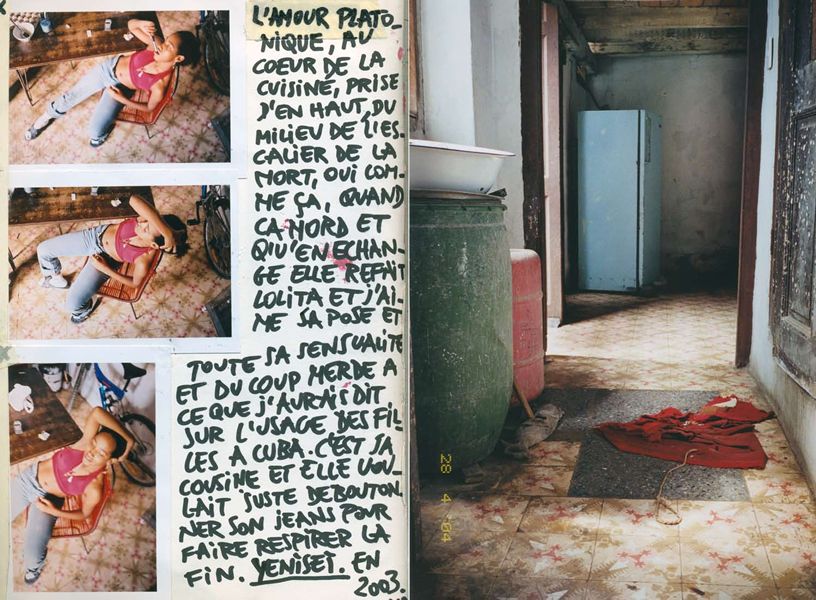 L'AMOUR PLATO_
NIQUE, AU
COEUR DE LA
CUISINE, PRISE
D'EN HAUT, DU
MILIEU DE L'ES_
CALIER DE LA
MORT, OUI COM_
ME ÇA, QUAND
ÇA MORD ET
QU'EN ECHAN_
GE ELLE REFAIT
LOLITA ET J'AI_
ME SA POSE ET
TOUTE SA SENSUALITE
ET DU COUP MERDE A
CE QUE J'AURAIS DIT
SUR L'USAGE DES FIL
LES A CUBA. C'EST SA
COUSINE ET ELLE VOU_
LAIT JUSTE DEBOUTON_
NER SON JEANS POUR
FAIRE RESPIRER LA
FIN. YENISET. EN
2003.
28 4 '04